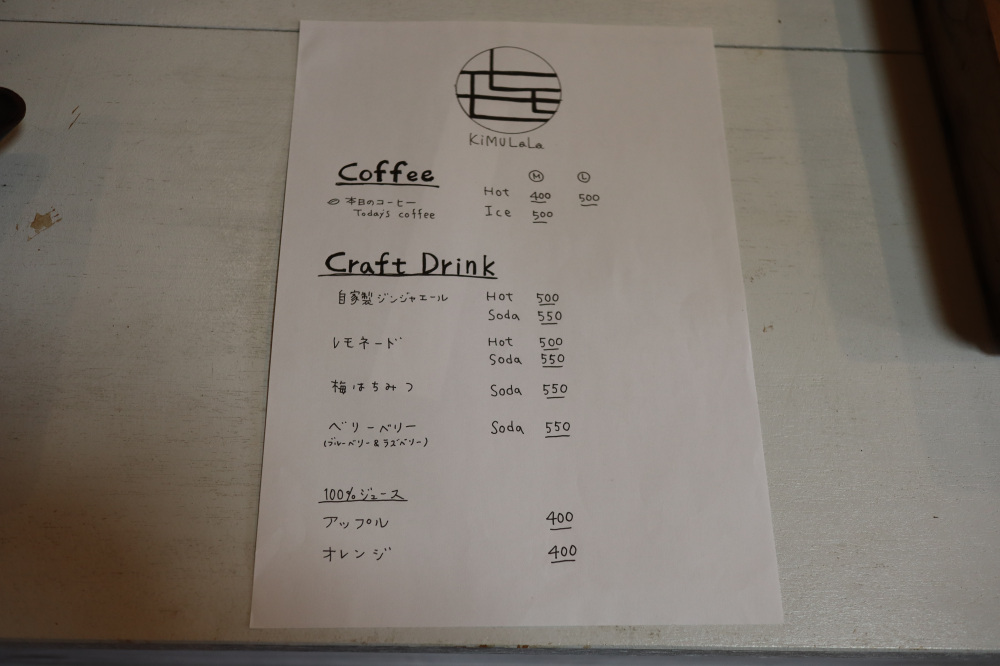 KiMULaLa
Coffee
Ⓜ Ⓛ
本日のコーヒー Hot 400 500
Today's coffee Ice 500
Craft Drink
自家製ジンジャエール Hot 500
Soda 550
レモネード Hot 500
Soda 550
梅はちみつ Soda 550
ベリーベリー Soda 550
(ブルーベリー&ラズベリー)
100%ジュース
アップル 400
オレンジ 400